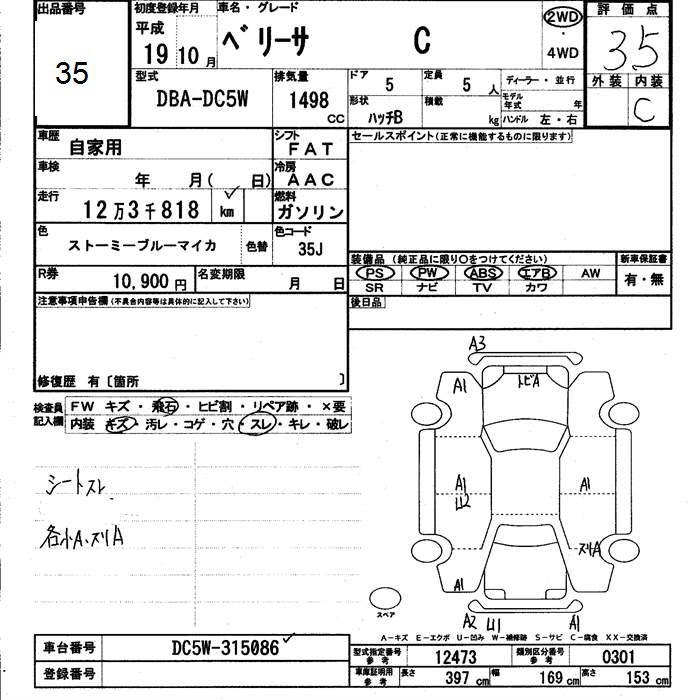 出品番号
35
初度登録年月
平成
19 10 月
車名・グレード
ベリーサ C
2WD
・
4WD
評価点
3.5
外装 内装
C
型式
DBA-DC5W
排気量
1498
CC
ドア
5
定員
5 人
形状
ハッチB
積載
kg
ディーラー・並行
モデル
年式 年
ハンドル 左・右
車歴
自家用
シフト
FAT
車検
年 月( 日)
冷房
AAC
走行
12万3千818 km
燃料
ガソリン
色
ストーミーブルーマイカ
色替
色コード
35J
R券
10,900 円
名変期限
月 日
セールスポイント(正常に機能するものに限ります)
装備品(純正品に限り○をつけてください)
PS PW ABS エアB AW
SR ナビ TV カワ
新車保証書
有・無
後日品
注意事項申告欄(不具合内容等は具体的に記入して下さい)
修復歴 有〔箇所 〕
検査員
記入欄
FW キズ・飛石・ヒビ割・リペア跡・×要
内装 キズ・汚レ・コゲ・穴・スレ・キレ・破レ
シートスレ
各小A、スリA
A3
A1
トビA
A1
U2
A1
スリA
A1
A2 U1 A1
スペア
A-キズ E-エクボ U-凹み W-補修跡 S-サビ C-腐食 XX-交換済
車台番号
DC5W-315086
登録番号
型式指定番号
参考
12473
類別区分番号
参考
0301
車庫証明用
参考
長さ
397 cm
幅
169 cm
高さ
153 cm